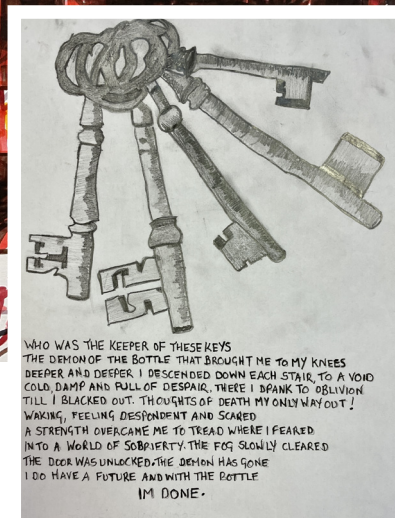 WHO WAS THE KEEPER OF THESE KEYS
THE DEMON OF THE BOTTLE THAT BROUGHT ME TO MY KNEES
DEEPER AND DEEPER I DESCENDED DOWN EACH STAIR, TO A VOID
COLD, DAMP AND FULL OF DESPAIR, THERE I DRANK TO OBLIVION
TILL I BLACKED OUT. THOUGHTS OF DEATH MY ONLY WAY OUT!
WAKING, FEELING DESPONDENT AND SCARED
A STRENGTH OVERCAME ME TO TREAD WHERE I FEARED
INTO A WORLD OF SOBRIERTY. THE FOG SLOWLY CLEARED
THE DOOR WAS UNLOCKED. THE DEMON HAS GONE
I DO HAVE A FUTURE AND WITH THE BOTTLE
IM DONE.